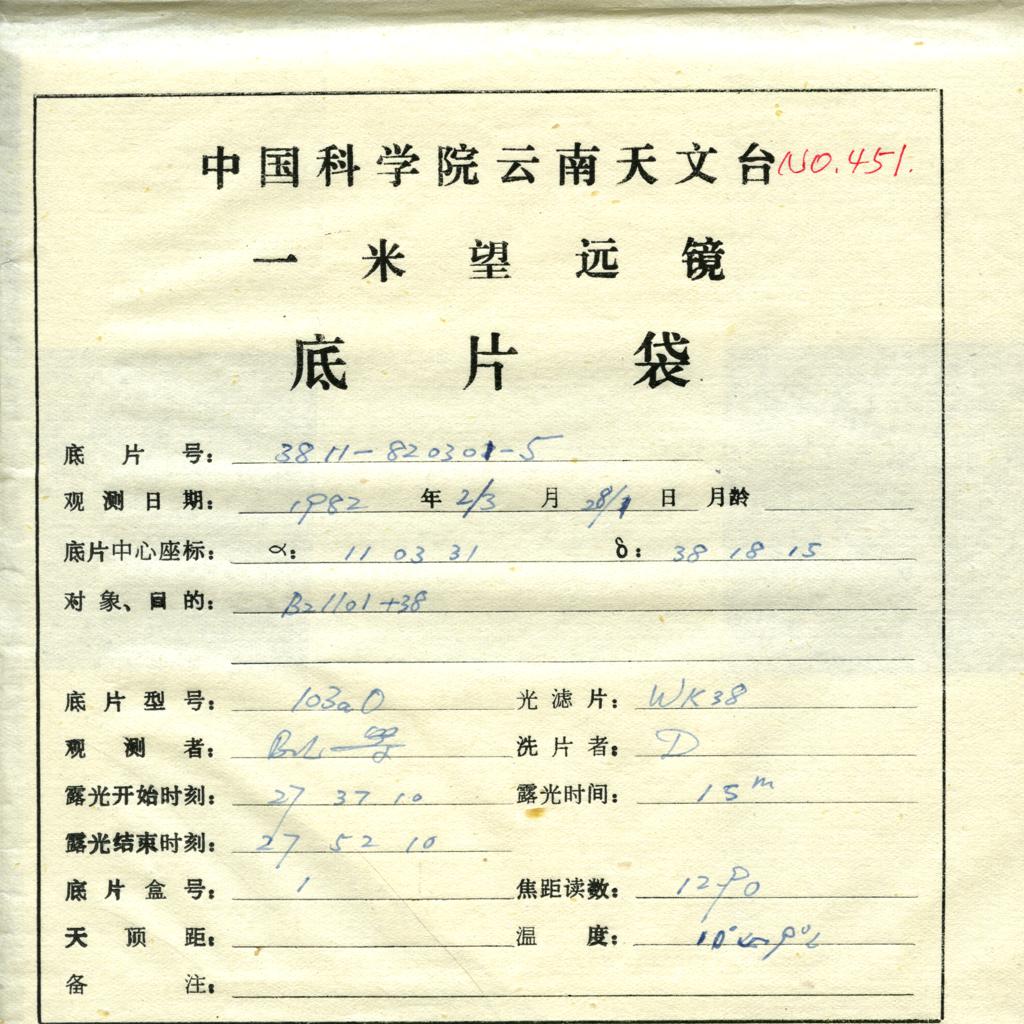 中国科学院云南天文台 NO.451.
一米望远镜
底片袋
底片号: 3811-820301-5
观测日期: 1982 年 2/3 月 28/1 日 月龄
底片中心座标: α: 11 03 31 δ: 38 18 15
对象、目的: B21101+38
底片型号: 103aO 光滤片: WK38
观测者: 洗片者: D
露光开始时刻: 27 37 10 露光时间: 15m
露光结束时刻: 27 52 10
底片盒号: 1 焦距读数: 1290
天顶距: 温度:
备注: